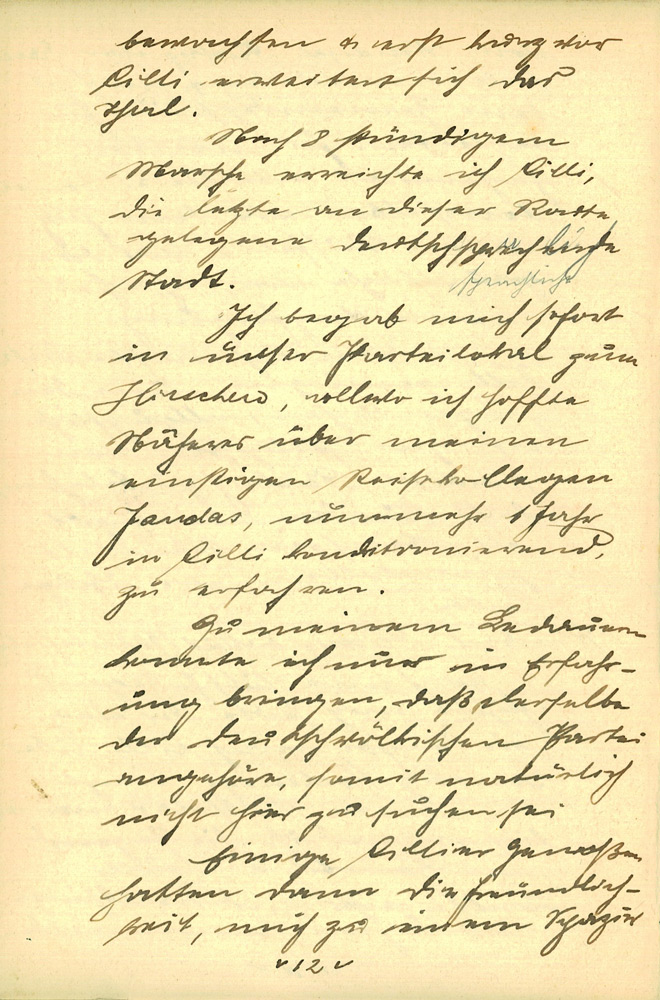 bewachsen & erst kurz vor
Cilli erweitert sich das
Thal.
Nach 8 stündigem
Marsche erreichte ich Cilli,
die letzte an dieser Route
gelegene deutschsprechende
sprachliche
Stadt.
Ich begab mich sofort
in unser Parteilokal zum
Hirschen, allwo ich hoffte
Näheres über meinen
einstigen Reisekollegen
Jandas, nunmehr 1 Jahr
in Cilli konditionierend,
zu erfahren.
Zu meinem Bedauern
konnte ich nur in Erfahr-
ung bringen, daß derselbe
der deutschvölkischen Partei
angehöre, somit natürlich
nicht hier zu suchen sei
Einige Cillier Genoßen
hatten dann die Freundlich-
keit, mich zu einem Spazier
12